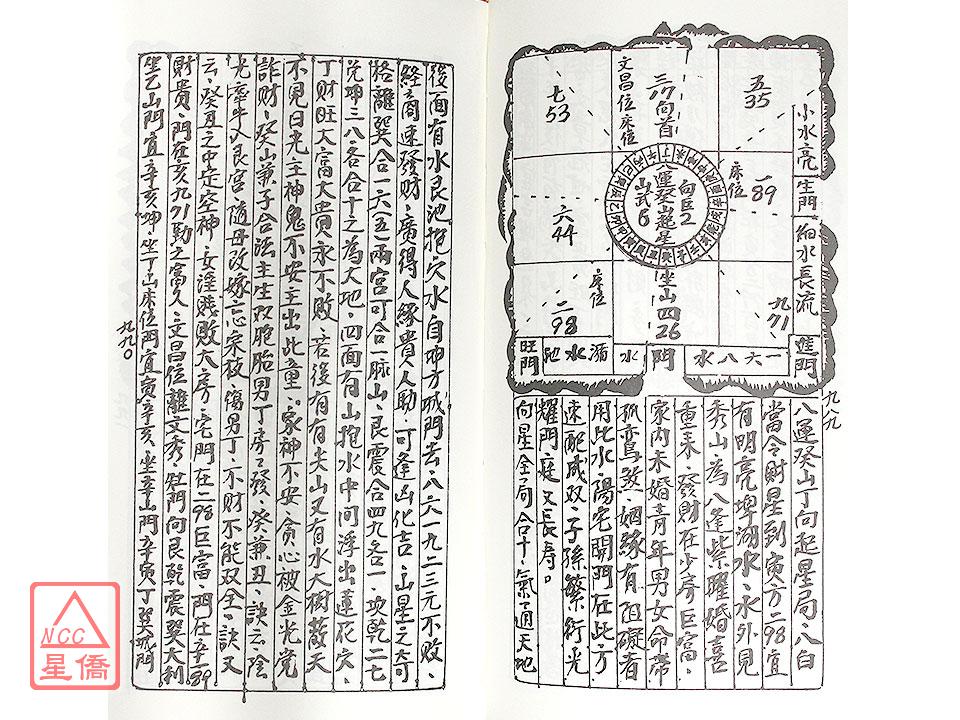 小水亮
生門
向水長流
五
35
三
17
向首
文昌位床位
七
53
床位
一
89
八運癸山丁向起星
向巨2
山武6
六
44
九
71
坐山四
26
床位
二
98
進門
一六八水
門
水
漏水池
旺門
八運癸山丁向起星局、八白
當令財星到寅方二98宜
有明亮埤湖水、水外見
秀山、為八逢紫曜婚喜
重來、發財在少亭巨富、
家內未婚青年男女命帶
孤鸞煞、姻緣有阻礙者
用此水、陽宅開門在此方
速配成双、子孫繁衍光
耀門庭又長壽。
向星全局合十、氣通天地
九八九
後面有水艮池、抱穴水自坤方城門去、八六一九二三元不敗、
經商速發財、廣得人緣貴人助、可逢凶化吉、山星之大可
格離巽合一六、五二兩宮可合一脉山、艮震合四九為合一、坎乾二七
兌坤三八、各合十之為大地、四面有山抱水中間浮出蓮花穴、
丁財旺大富大貴永不敗、若後有有尖山又有水大樹蔽天
不見日光主神鬼不安主出此童、家神不安、貪心被金光党
詐財、癸山兼子合法主生双胞胎男丁房房發、癸兼丑、訣云、陰
光牽牛入艮宮、隨母改嫁忘宗枝、傷男丁、不財不能双全、訣又
云、癸丑之中定空神、女淫賤敗大房、宅門在二98巨富、門在辛一89
財貴、門在亥九71勤之富久、文昌位離文秀、缸門向艮乾震巽大利
坐乙山門宜辛亥坤、坐丁山床位門宜寅辛亥、坐辛山門辛寅丁巽城門
九九〇
NCC
星僑